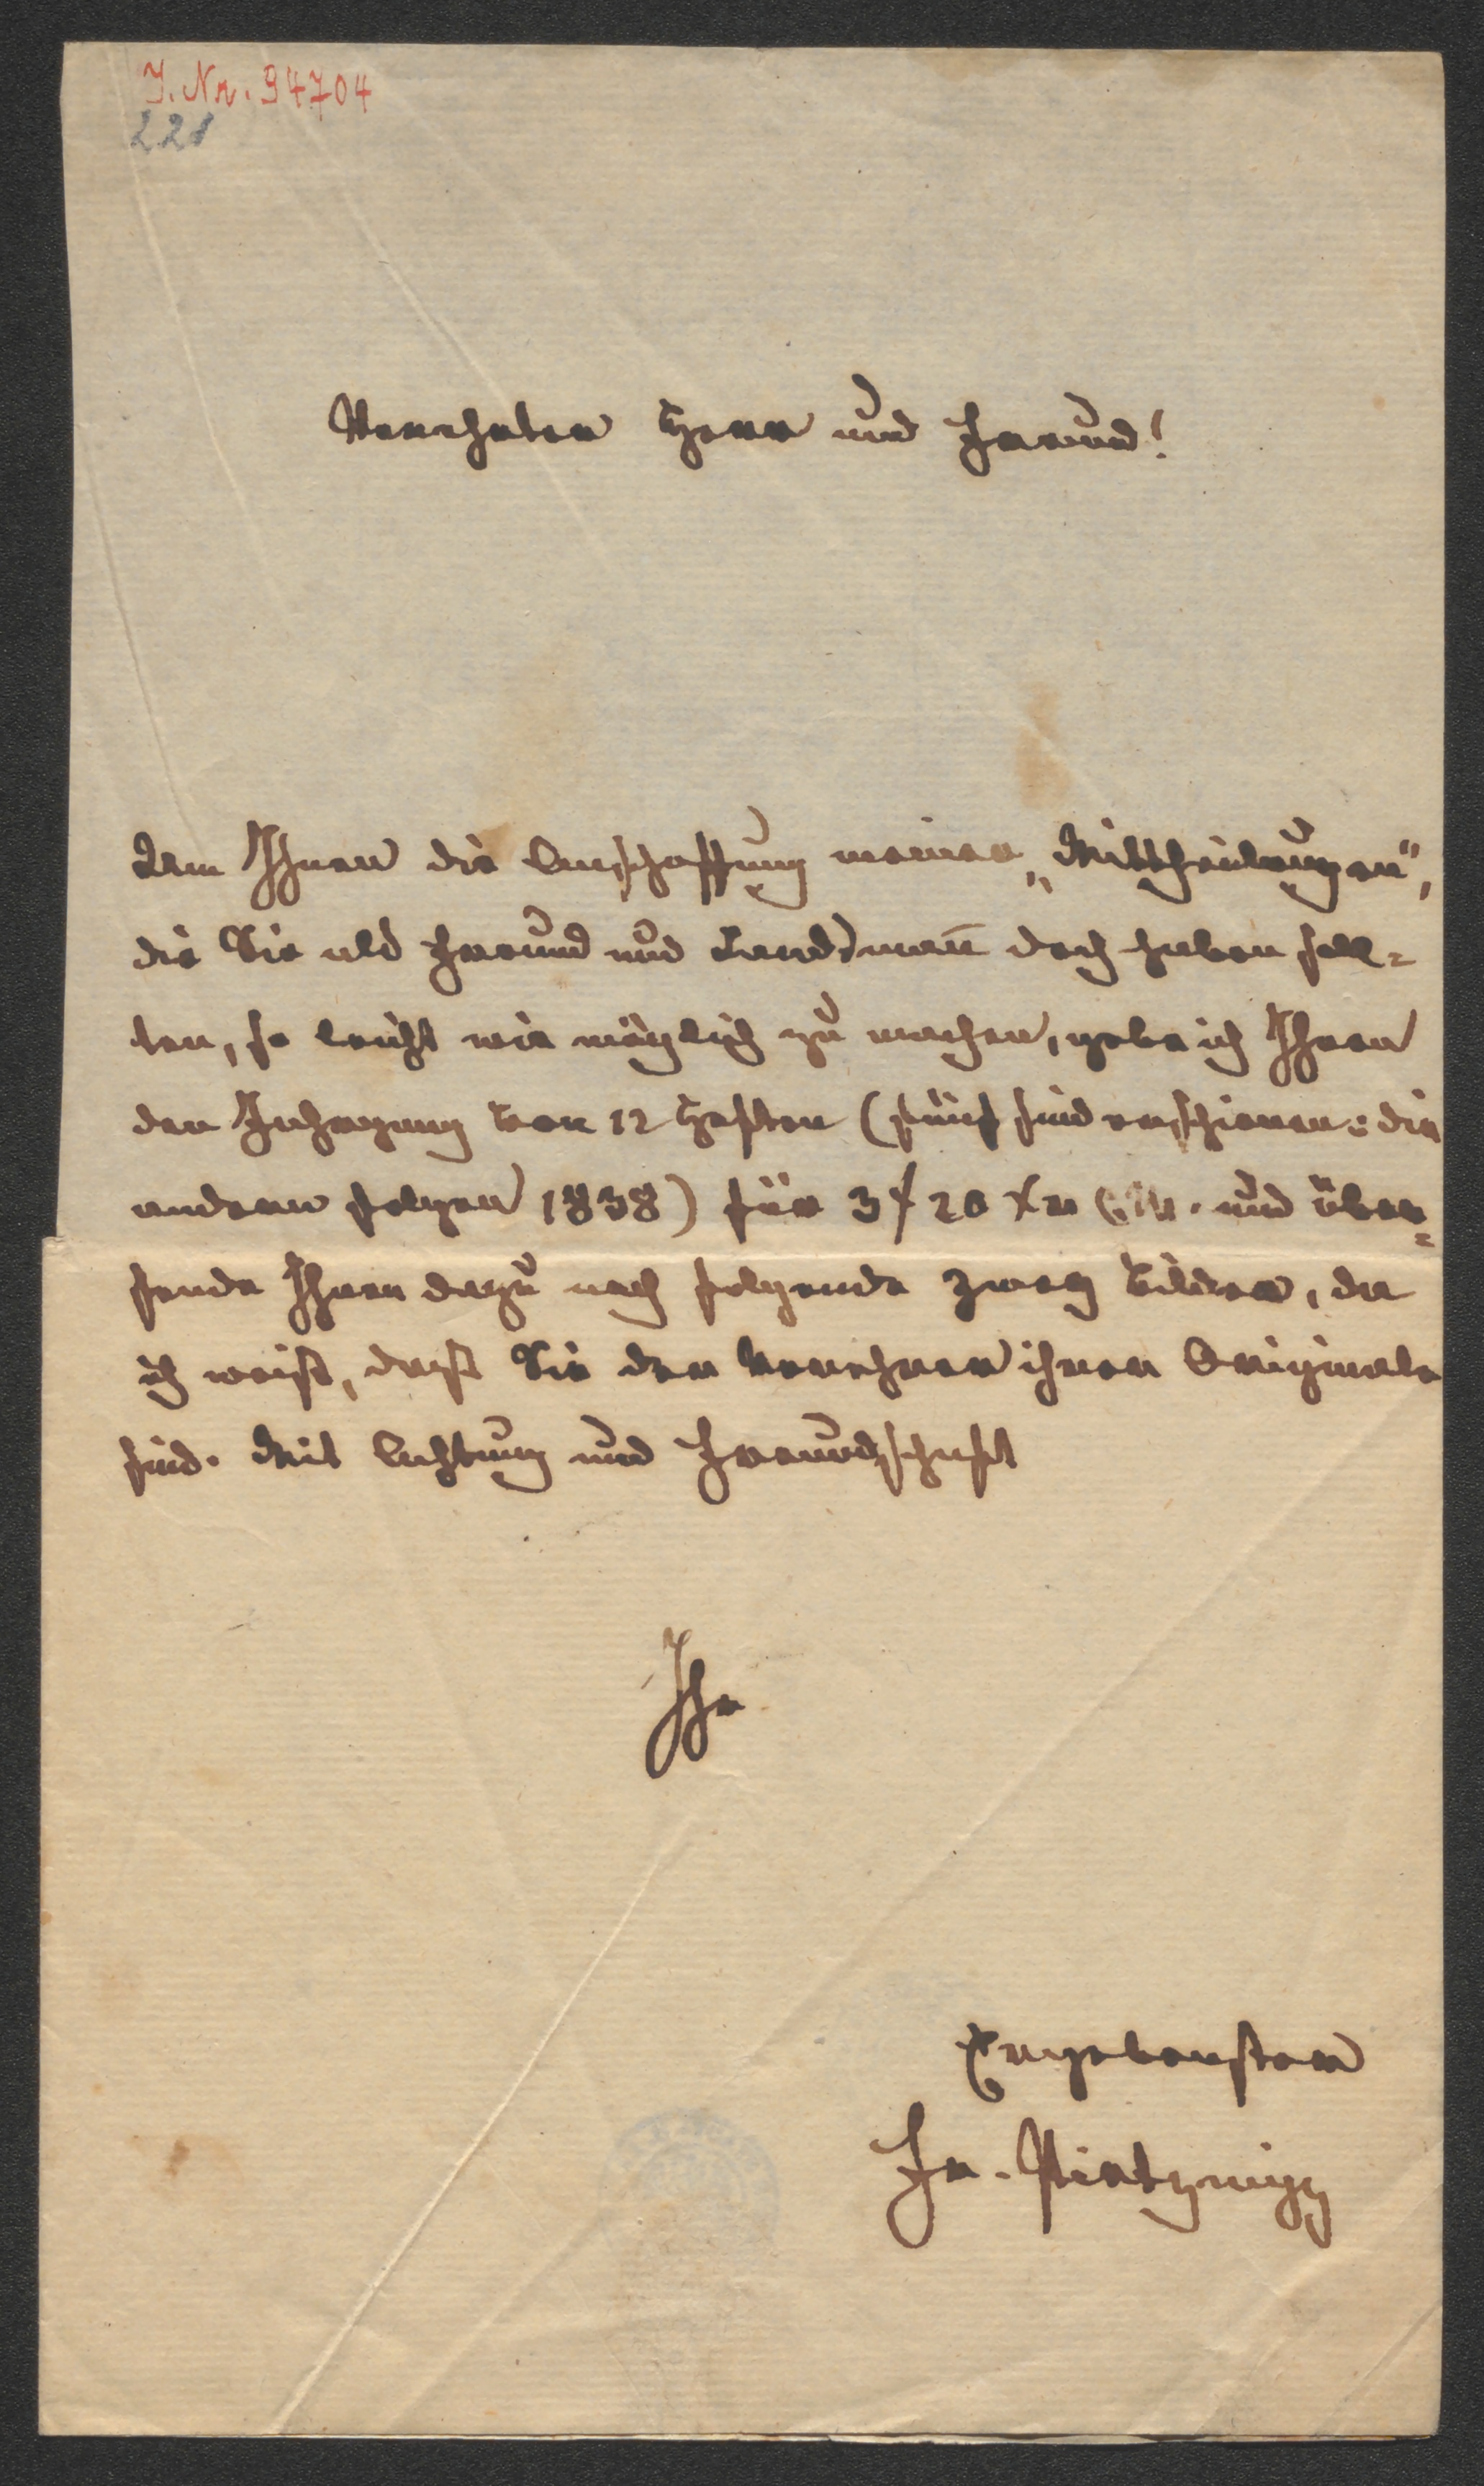 I. Nr. 94704
221
Verehrter Herr und Freund!
Um Ihnen die Anschaffung meiner „Mittheilungen",
die Sie als Freund und Landsmann̄ doch haben soll=
ten, so leicht wie möglich zu machen, gebe ich Ihnen
den Jahrgang von 12 Heften (fünf sind erschienen: die
andern folgen 1838) für 3 f 20 xr CM. und über=
sende Ihnen dazu noch folgende zwey Bilder, da
ich weiß, daß Sie der Verehrer ihrer Originale
sind. Mit Achtung und Freundschaft
Ihr
Ergebenster
Fr. Pietznigg